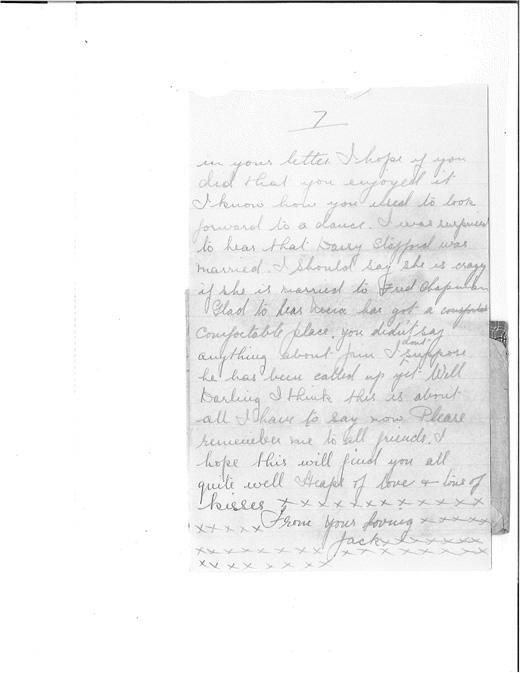 7
in your letter I hope if you
did that you enjoyed it
I know how you used to look
forward to a dance. I was surprised
to hear that Daisy Clifford was
married. I should say she is crazy
if she is married to Fred Chapman
Glad to hear has got a
comfortable place. you didn't say
anything about Jim I don't suppose
he has been called up yet. Well
Darling I think this is about
all I have to say now Please
remember me to all friends. I
hope this will find you all
quite well Heaps of love & tons of
kisses x x x x x x x x x x x x
x x x x x From your loving x x x x x
Jack x x x x x x x
x x x x x x x x x x x x x x x x x x x
x x x x x x x x